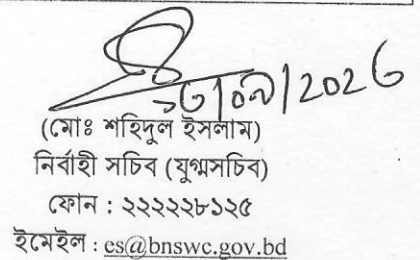 (মোঃ শহিদুল ইসলাম)
নির্বাহী সচিব (যুগ্মসচিব)
ফোন : ২২২২২৮১২৫
ইমেইল : es@bnswc.gov.bd